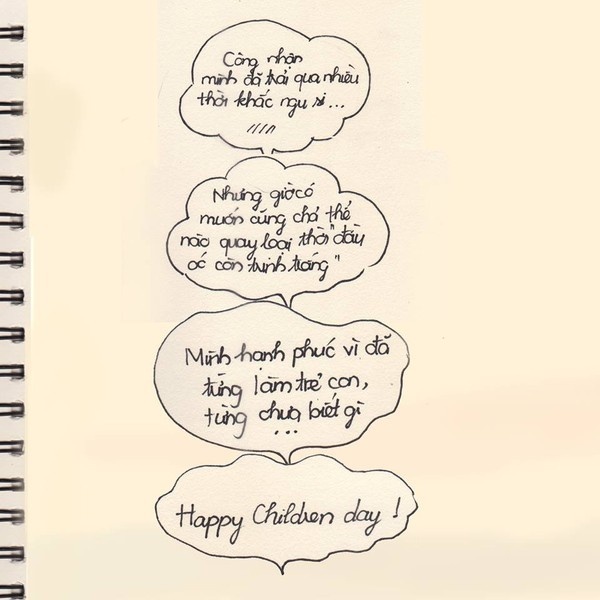 Công nhận
mình đã trải qua nhiều
thời khắc ngu si...
Nhưng giờ có
muốn cũng chả thể
nào quay loại thời "đầu
óc còn trinh trắng"
Mình hạnh phúc vì đã
từng làm trẻ con,
từng chưa biết gì
...
Happy Children day !